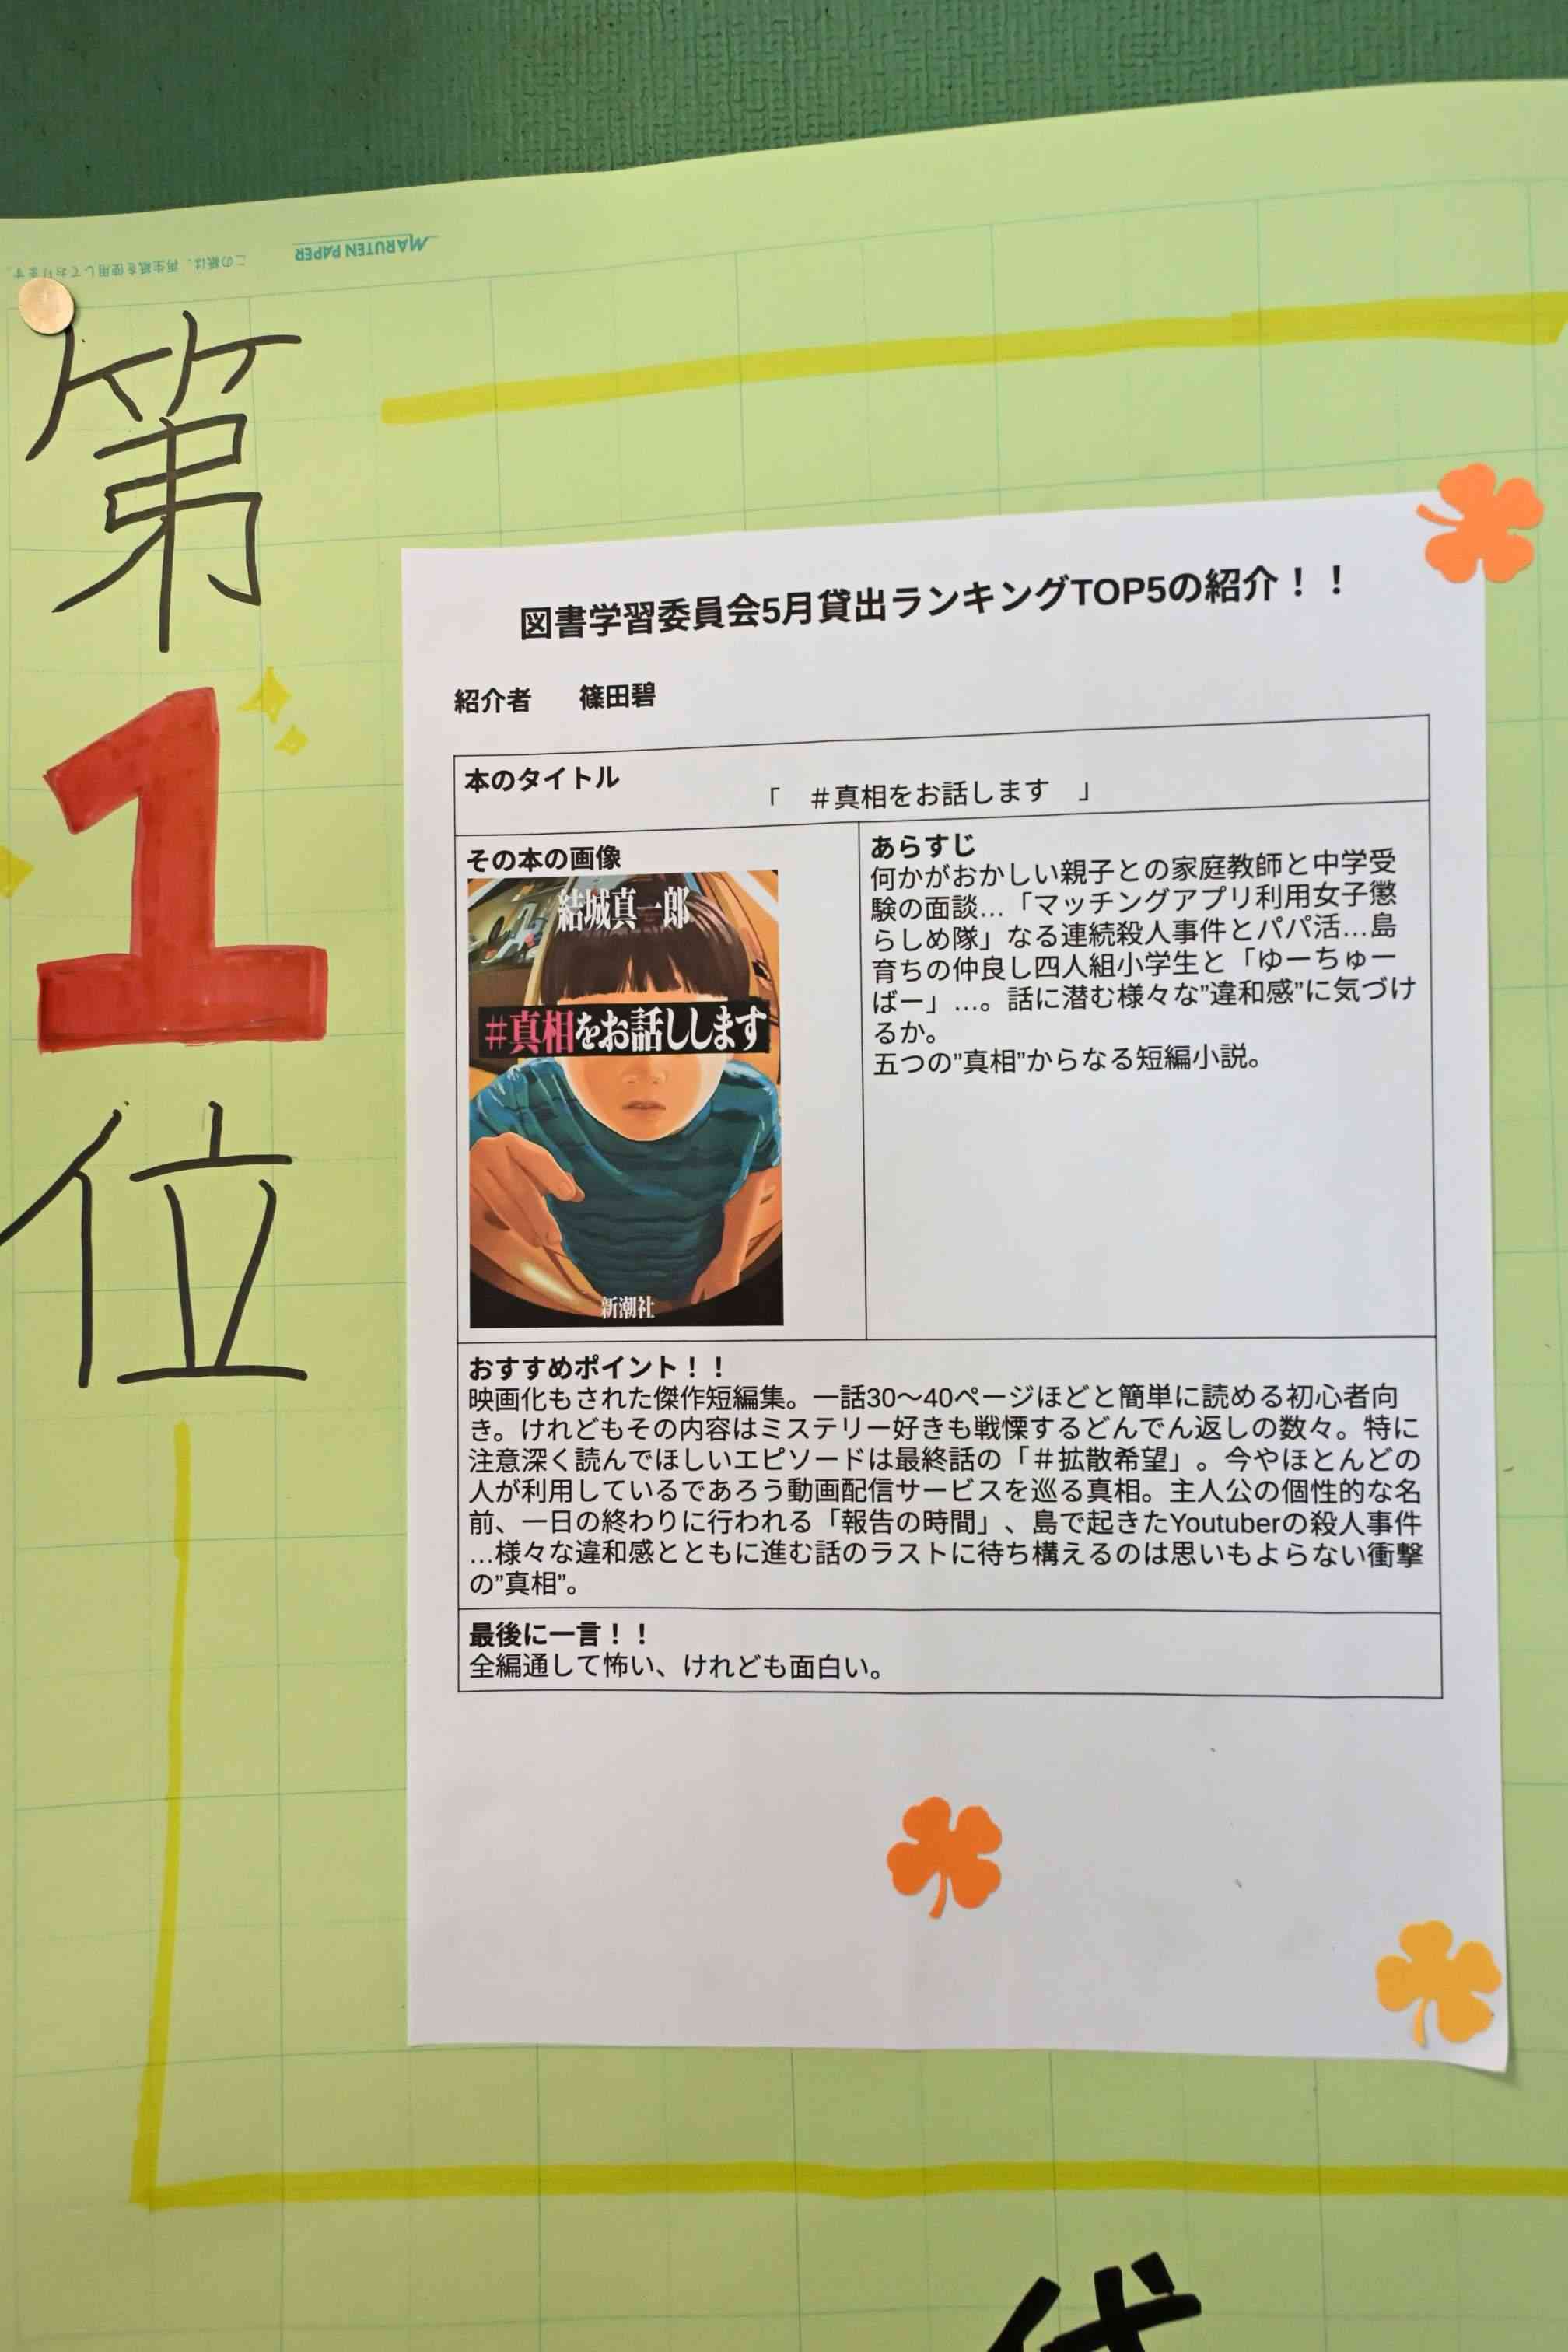 この紙は、再生紙を使用しております。
MARUTEN PAPER
第
1
位
図書学習委員会5月貸出ランキングTOP5の紹介！！
紹介者　　篠田碧
本のタイトル
「　＃真相をお話します　」
その本の画像
結城真一郎
#真相をお話しします
新潮社
あらすじ
何かがおかしい親子との家庭教師と中学受
験の面談…「マッチングアプリ利用女子懲
らしめ隊」なる連続殺人事件とパパ活…島
育ちの仲良し四人組小学生と「ゆーちゅー
ばー」…。話に潜む様々な”違和感”に気づけ
るか。
五つの”真相”からなる短編小説。
おすすめポイント！！
映画化もされた傑作短編集。一話30〜40ページほどと簡単に読める初心者向
き。けれどもその内容はミステリー好きも戦慄するどんでん返しの数々。特に
注意深く読んでほしいエピソードは最終話の「＃拡散希望」。今やほとんどの
人が利用しているであろう動画配信サービスを巡る真相。主人公の個性的な名
前、一日の終わりに行われる「報告の時間」、島で起きたYoutuberの殺人事件
…様々な違和感とともに進む話のラストに待ち構えるのは思いもよらない衝撃
の”真相”。
最後に一言！！
全編通して怖い、けれども面白い。